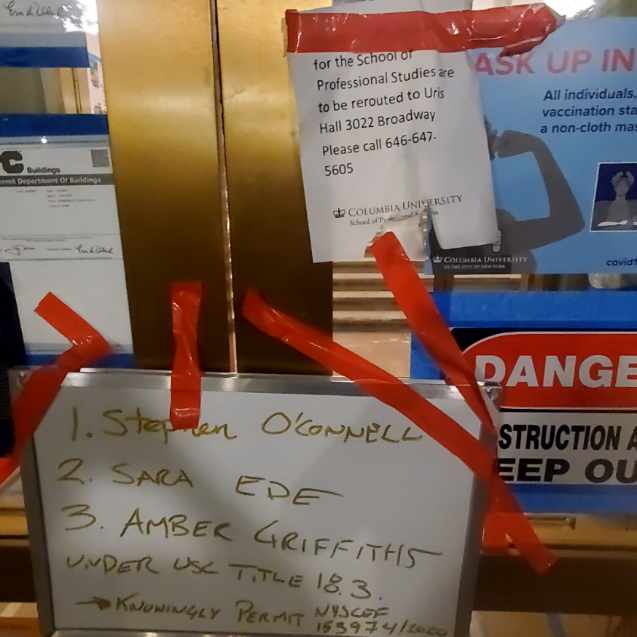 Buildings
Department Of Buildings
for the School of
Professional Studies are
to be rerouted to Uris
Hall 3022 Broadway
Please call 646-647-
5605
COLUMBIA UNIVERSITY
School of Professional
ASK UP IN
All individuals,
vaccination sta
a non-cloth mas
COLUMBIA UNIVERSITY
IN THE CITY OF NEW YORK
covid1
DANGE
STRUCTION A
EEP OU
1. Stephen O'CONNELL
2. SARA EDE
3. AMBER GRIFFITHS
UNDER USC TITLE 18.3.
→ KNOWINGLY PERMIT NYSCEF
153974/2020